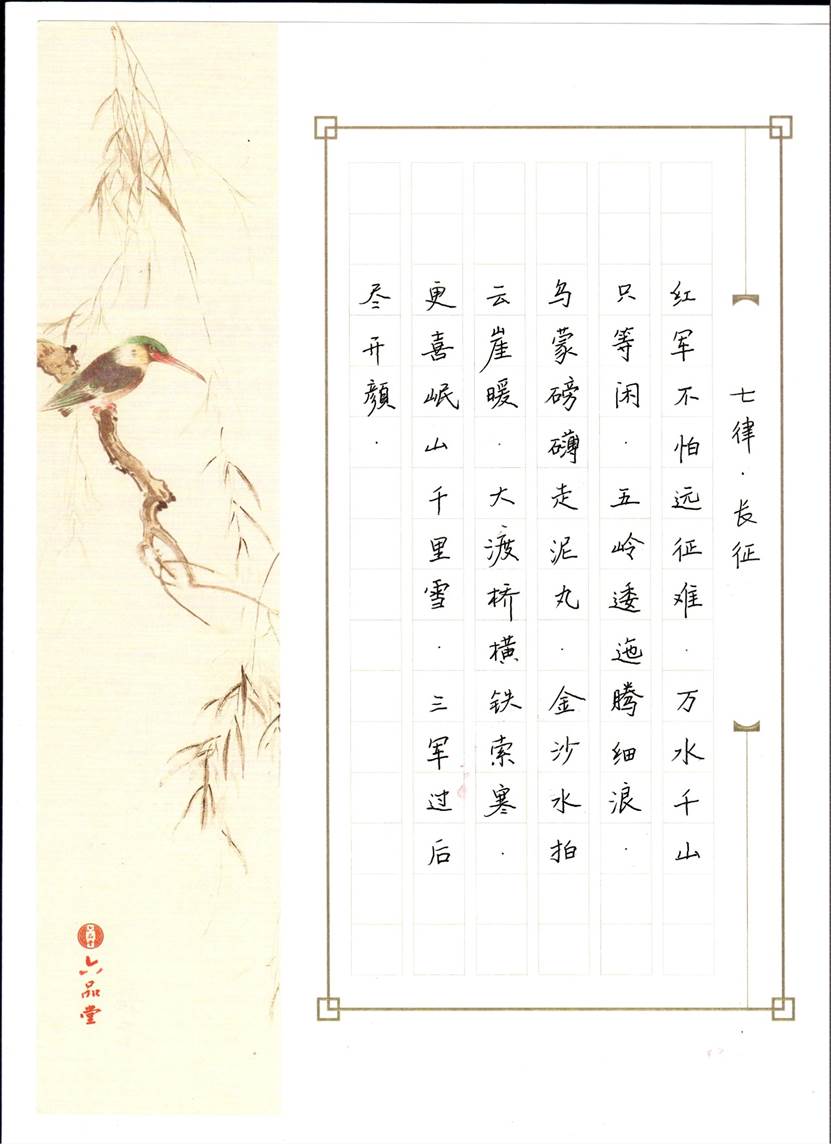 七律·长征
红军不怕远征难·万水千山
只等闲·五岭逶迤腾细浪·
乌蒙磅礴走泥丸·金沙水拍
云崖暖·大渡桥横铁索寒·
更喜岷山千里雪·三军过后
尽开顔·
六品堂
六品堂